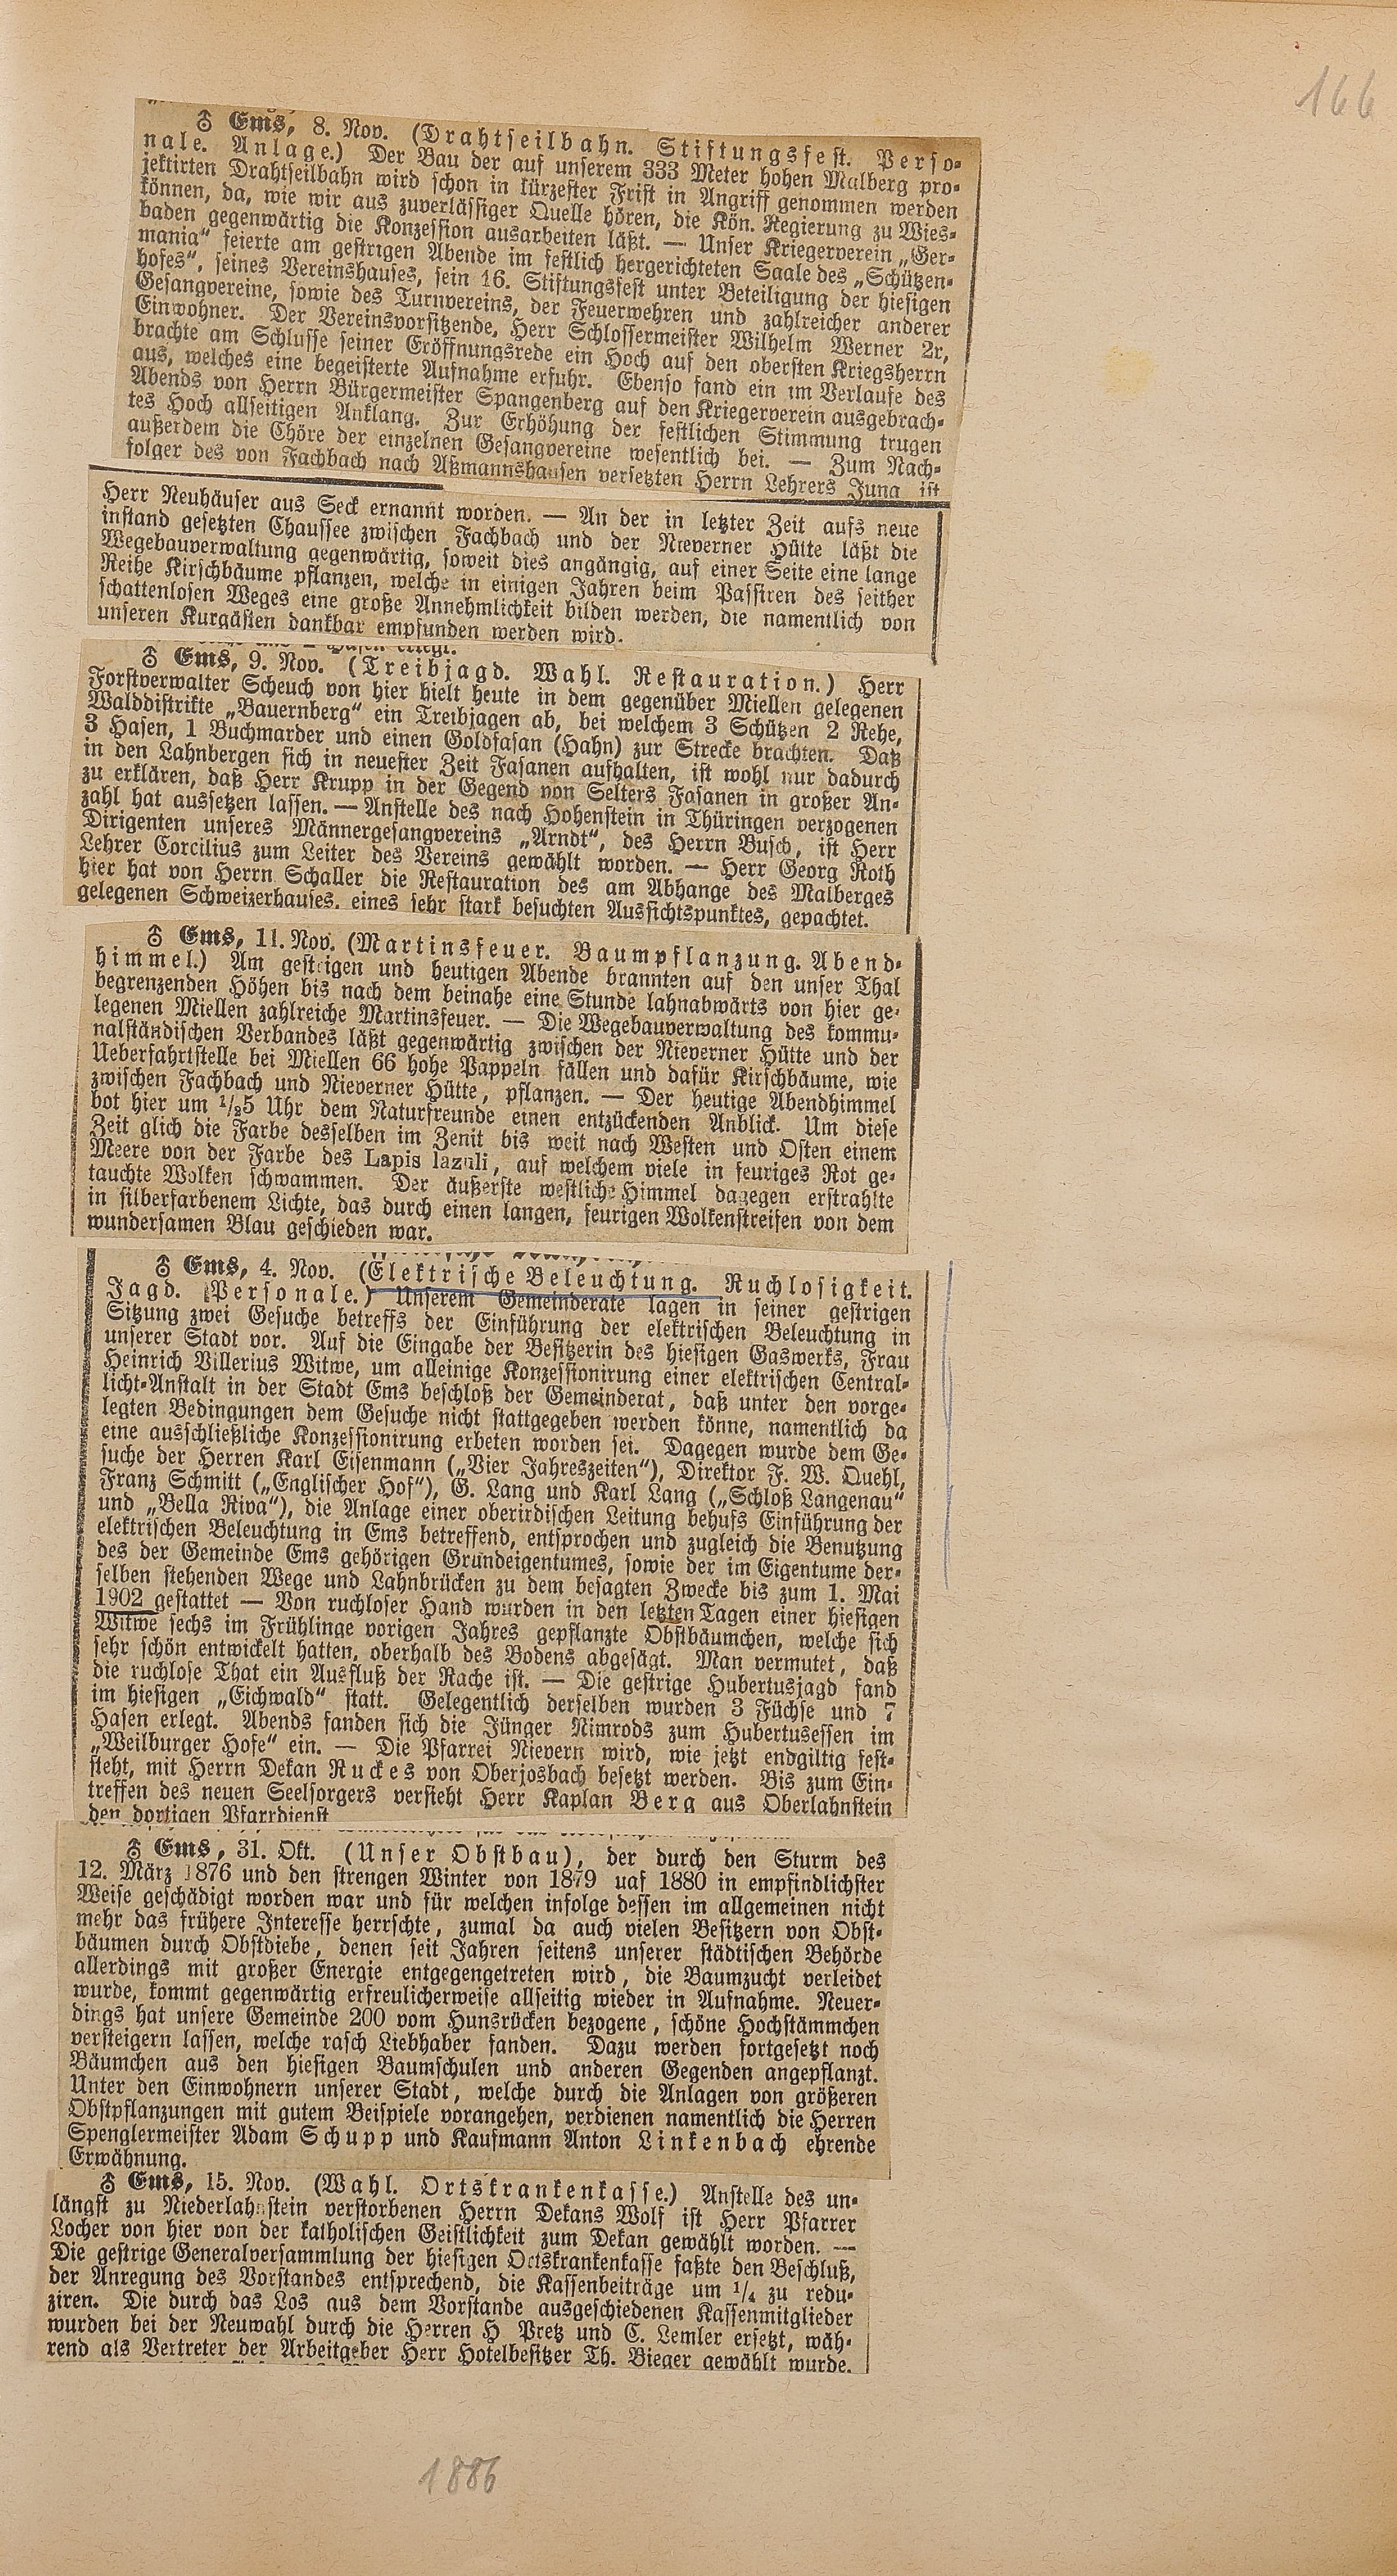 166
♁ Ems, 8. Nov. (Drahtseilbahn. Stiftungsfest. Perso-
nale. Anlage.) Der Bau der auf unserem 333 Meter hohen Malberg pro-
jektirten Drahtseilbahn wird schon in kürzester Frist in Angriff genommen werden
können, da, wie wir aus zuverlässiger Quelle hören, die Kön. Regierung zu Wies-
baden gegenwärtig die Konzession ausarbeiten läßt. — Unser Kriegerverein „Ger-
mania“ feierte am gestrigen Abende im festlich hergerichteten Saale des „Schützen-
hofes“, seines Vereinshauses, sein 16. Stiftungsfest unter Beteiligung der hiesigen
Gesangvereine, sowie des Turnvereins, der Feuerwehren und zahlreicher anderer
Einwohner. Der Vereinsvorsitzende, Herr Schlossermeister Wilhelm Werner 2r,
brachte am Schlusse seiner Eröffnungsrede ein Hoch auf den obersten Kriegsherrn
aus, welches eine begeisterte Aufnahme erfuhr. Ebenso fand ein im Verlaufe des
Abends von Herrn Bürgermeister Spangenberg auf den Kriegerverein ausgebrach-
tes Hoch allseitigen Anklang. Zur Erhöhung der festlichen Stimmung trugen
außerdem die Chöre der einzelnen Gesangvereine wesentlich bei. — Zum Nach-
folger des von Fachbach nach Aßmannshausen versetzten Herrn Lehrers Jung ist
Herr Neuhäuser aus Seck ernannt worden. — An der in letzter Zeit aufs neue
instand gesetzten Chaussee zwischen Fachbach und der Nieverner Hütte läßt die
Wegebauverwaltung gegenwärtig, soweit dies angängig, auf einer Seite eine lange
Reihe Kirschbäume pflanzen, welche in einigen Jahren beim Passiren des seither
schattenlosen Weges eine große Annehmlichkeit bilden werden, die namentlich von
unseren Kurgästen dankbar empfunden werden wird.
♁ Ems, 9. Nov. (Treibjagd. Wahl. Restauration.) Herr
Forstverwalter Scheuch von hier hielt heute in dem gegenüber Miellen gelegenen
Walddistrikte „Bauernberg“ ein Treibjagen ab, bei welchem 3 Schützen 2 Rehe,
3 Hasen, 1 Buchmarder und einen Goldfasan (Hahn) zur Strecke brachten. Daß
in den Lahnbergen sich in neuester Zeit Fasanen aufhalten, ist wohl nur dadurch
zu erklären, daß Herr Krupp in der Gegend von Selters Fasanen in großer An-
zahl hat aussetzen lassen. — Anstelle des nach Hohenstein in Thüringen verzogenen
Dirigenten unseres Männergesangvereins „Arndt“, des Herrn Busch, ist Herr
Lehrer Corcilius zum Leiter des Vereins gewählt worden. — Herr Georg Roth
hier hat von Herrn Schaller die Restauration des am Abhange des Malberges
gelegenen Schweizerhauses, eines sehr stark besuchten Aussichtspunktes, gepachtet.
♁ Ems, 11. Nov. (Martinsfeuer. Baumpflanzung. Abend-
himmel.) Am gestrigen und heutigen Abende brannten auf den unser Thal
begrenzenden Höhen bis nach dem beinahe eine Stunde lahnabwärts von hier ge-
legenen Miellen zahlreiche Martinsfeuer. — Die Wegebauverwaltung des kommu-
nalständischen Verbandes läßt gegenwärtig zwischen der Nieverner Hütte und der
Ueberfahrtstelle bei Miellen 66 hohe Pappeln fällen und dafür Kirschbäume, wie
zwischen Fachbach und Nieverner Hütte, pflanzen. — Der heutige Abendhimmel
bot hier um 1/25 Uhr dem Naturfreunde einen entzückenden Anblick. Um diese
Zeit glich die Farbe desselben im Zenit bis weit nach Westen und Osten einem
Meere von der Farbe des Lapis lazuli, auf welchem viele in feuriges Rot ge-
tauchte Wolken schwammen. Der äußerste westliche Himmel dagegen erstrahlte
in silberfarbenem Lichte, das durch einen langen, feurigen Wolkenstreifen von dem
wundersamen Blau geschieden war.
♁ Ems, 4. Nov. (Elektrische Beleuchtung. Ruchlosigkeit.
Jagd. Personale.) Unserem Gemeinderate lagen in seiner gestrigen
Sitzung zwei Gesuche betreffs der Einführung der elektrischen Beleuchtung in
unserer Stadt vor. Auf die Eingabe der Besitzerin des hiesigen Gaswerks, Frau
Heinrich Villerius Witwe, um alleinige Konzessionirung einer elektrischen Central-
licht-Anstalt in der Stadt Ems beschloß der Gemeinderat, daß unter den vorge-
legten Bedingungen dem Gesuche nicht stattgegeben werden könne, namentlich da
eine ausschließliche Konzessionirung erbeten worden sei. Dagegen wurde dem Ge-
suche der Herren Karl Eisenmann („Vier Jahreszeiten“), Direktor F. W. Quehl,
Franz Schmitt („Englischer Hof“), G. Lang und Karl Lang („Schloß Langenau“
und „Bella Riva“), die Anlage einer oberirdischen Leitung behufs Einführung der
elektrischen Beleuchtung in Ems betreffend, entsprochen und zugleich die Benutzung
des der Gemeinde Ems gehörigen Grundeigentumes, sowie der im Eigentume der-
selben stehenden Wege und Lahnbrücken zu dem besagten Zwecke bis zum 1. Mai
1902 gestattet — Von ruchloser Hand wurden in den letzten Tagen einer hiesigen
Witwe sechs im Frühlinge vorigen Jahres gepflanzte Obstbäumchen, welche sich
sehr schön entwickelt hatten, oberhalb des Bodens abgesägt. Man vermutet, daß
die ruchlose That ein Ausfluß der Rache ist. — Die gestrige Hubertusjagd fand
im hiesigen „Eichwald“ statt. Gelegentlich derselben wurden 3 Füchse und 7
Hasen erlegt. Abends fanden sich die Jünger Nimrods zum Hubertusessen im
„Weilburger Hofe“ ein. — Die Pfarrei Nievern wird, wie jetzt endgiltig fest-
steht, mit Herrn Dekan Ruckes von Oberjosbach besetzt werden. Bis zum Ein-
treffen des neuen Seelsorgers versieht Herr Kaplan Berg aus Oberlahnstein
den dortigen Pfarrdienst
♁ Ems, 31. Okt. (Unser Obstbau), der durch den Sturm des
12. März 1876 und den strengen Winter von 1879 uaf 1880 in empfindlichster
Weise geschädigt worden war und für welchen infolge dessen im allgemeinen nicht
mehr das frühere Interesse herrschte, zumal da auch vielen Besitzern von Obst-
bäumen durch Obstdiebe, denen seit Jahren seitens unserer städtischen Behörde
allerdings mit großer Energie entgegengetreten wird, die Baumzucht verleidet
wurde, kommt gegenwärtig erfreulicherweise allseitig wieder in Aufnahme. Neuer-
dings hat unsere Gemeinde 200 vom Hunsrücken bezogene, schöne Hochstämmchen
versteigern lassen, welche rasch Liebhaber fanden. Dazu werden fortgesetzt noch
Bäumchen aus den hiesigen Baumschulen und anderen Gegenden angepflanzt.
Unter den Einwohnern unserer Stadt, welche durch die Anlagen von größeren
Obstpflanzungen mit gutem Beispiele vorangehen, verdienen namentlich die Herren
Spenglermeister Adam Schupp und Kaufmann Anton Linkenbach ehrende
Erwähnung.
♁ Ems, 15. Nov. (Wahl. Ortskrankenkasse.) Anstelle des un-
längst zu Niederlahnstein verstorbenen Herrn Dekans Wolf ist Herr Pfarrer
Locher von hier von der katholischen Geistlichkeit zum Dekan gewählt worden. —
Die gestrige Generalversammlung der hiesigen Ortskrankenkasse faßte den Beschluß,
der Anregung des Vorstandes entsprechend, die Kassenbeiträge um 1/4 zu redu-
ziren. Die durch das Los aus dem Vorstande ausgeschiedenen Kassenmitglieder
wurden bei der Neuwahl durch die Herren H. Pretz und C. Lemler ersetzt, wäh-
rend als Vertreter der Arbeitgeber Herr Hotelbesitzer Th. Bieger gewählt wurde.
1886